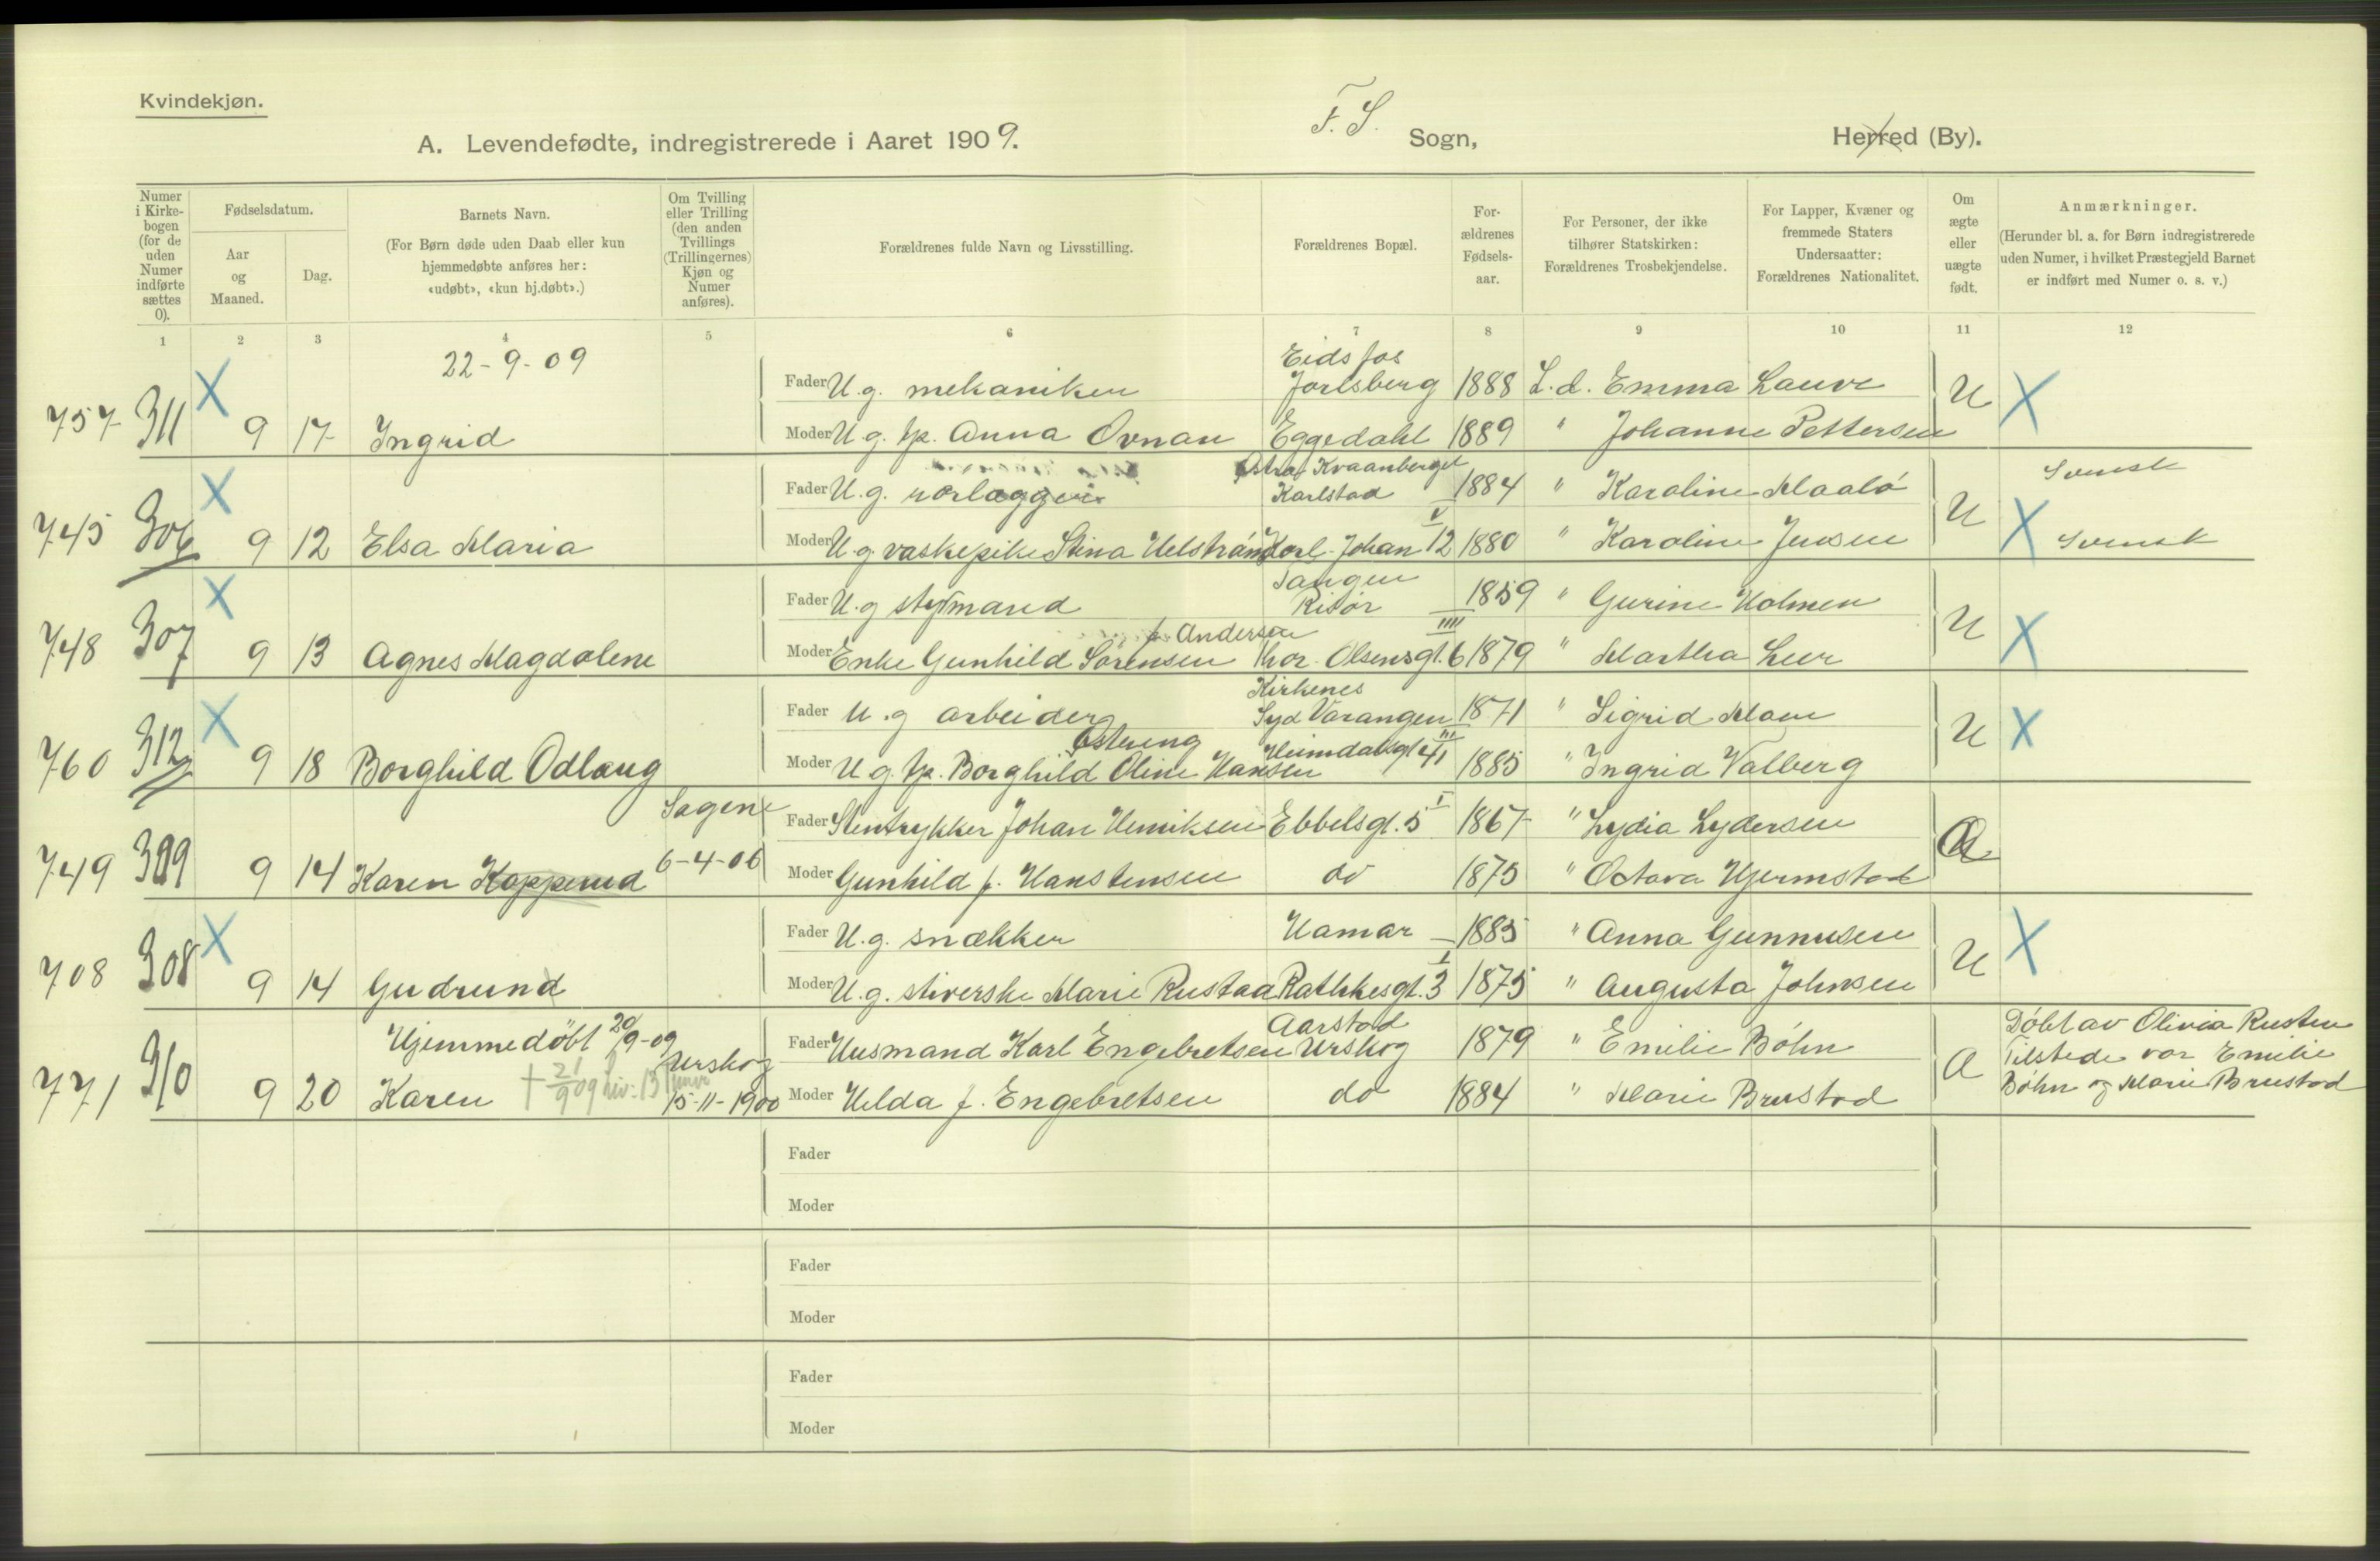 Kvindekjøn.
A. Levendefødte, indregistrerede i Aaret 1909.
F. S. Sogn,
Herred (By).
Numer i Kirke- bogen (for de uden Numer indførte sættes 0).
Fødselsdatum.
Aar og Maaned.
Dag.
Barnets Navn.
(For Børn døde uden Daab eller kun hjemmedøbte anføres her: «udøbt», «kun hj.døbt».)
Om Tvilling eller Trilling (den anden Tvillings (Trillingernes) Kjøn og Numer anføres).
Forældrenes fulde Navn og Livsstilling.
Forældrenes Bopæl.
For- ældrenes Fødsels- aar.
For Personer, der ikke tilhører Statskirken: Forældrenes Trosbekjendelse.
For Lapper, Kvæner og fremmede Staters Undersaatter: Forældrenes Nationalitet.
Om ægte eller uægte født.
Anmærkninger.
(Herunder bl. a. for Børn indregistrerede uden Numer, i hvilket Præstegjeld Barnet er indført med Numer o. s. v.)
1 2 3 4 5 6 7 8 9 10 11 12
22-9-09
Eidsfos
X Fader U.g. mekaniker Jarlsberg 1888 L.d. Emma Lauve U X
757 311 9 17 Ingrid Moder U.g. tp. Anna Ovnan Eggedahl 1889 " Johanne Pettersen
Østra Kvaanberget
X Fader U.g. rørlægger Karlstad 1884 " Karoline Maalö U Svensk
745 306 9 12 Elsa Maria Moder U.g. vaskepike Stina Helstränd Karl Johan 12 V 1880 " Karoline Jensen X Svensk
Tangen
X Fader U.g styrmand Risör 1859 " Gurine Holmen U
f. Andersen
748 307 9 13 Agnes Magdalene Moder Enke Gunhild Sörensen Thor Olsensgt. 6 IIII 1879 " Martha Leer X
Kirkenes
X Fader U.g arbeider Syd Varangen 1871 " Sigrid Moen U X
Østreng
760 312 9 18 Borghild Odlaug Moder U.g. tp. Borghild Oline Hansen Heimdalsgt 41 III 1885 " Ingrid Valberg
Sagene
Fader Stentrykker Johan Henriksen Ebbelsgt. 5 I 1867 " Lydia Lydersen Æ
749 309 9 14 Karen Kopperud 6-4-06 Moder Gunhild f. Hanstensen do 1875 " Octava Hjermstad
X Fader U.g. snækker Hamar 1885 " Anna Gunnusen U X
708 308 9 14 Gudrund Moder U.g. stiverske Marie Rustad Rathkesgt. 3 I 1875 " Augusta Johnsen
Hjemmedöbt 20/9-09
Aarstad
Urskog Fader Husmand Karl Engebretsen Urskog 1879 " Emilie Böhn Æ Döbt av Olivia Rusten
771 310 9 20 Karen + 21/9 09 15-11-1900 Moder Helda f. Engebretsen do 1884 " Marie Brustad Tilstede var Emilie
Böhn og Marie Brustad
Fader
Moder
Fader
Moder
Fader
Moder